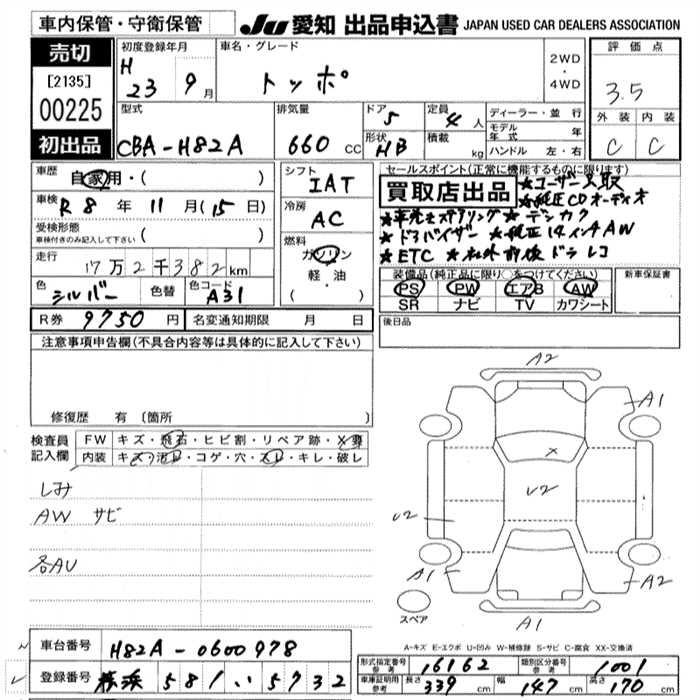 車内保管・守衛保管
JU 愛知 出品申込書 JAPAN USED CAR DEALERS ASSOCIATION
売切
[2135]
00225
初出品
初度登録年月
H 23 9月
車名・グレード
トッポ
2WD
・
4WD
評価点
3.5
外装 内装
C C
型式
CBA-H82A
排気量
660 CC
ドア 5
形状 HB
定員 4人
積載 kg
ディーラー・並行
モデル年式 年
ハンドル 左・右
車歴
自家用・( )
車検
R8年11月(15日)
受検形態
車検付きのみ記入して下さい ( )
走行
17万2千382km
色
シルバー
色替
色コード
A31
シフト
IAT
冷房
AC
燃料
ガソリン
軽・油
( )
セールスポイント(正常に機能するものに限ります)
買取店出品
★ユーザー買取
★純正CDオーディオ
★革巻きステアリング ★デンカク
★ドアバイザー ★純正14インチAW
★ETC ★社外前後ドラレコ
装備品(純正品に限り○をつけてください)
PS PW エアB AW
SR ナビ TV カワシート
新車保証書
後日品
R券 9750円
名変通知期限 月 日
注意事項申告欄(不具合内容等は具体的に記入して下さい)
修復歴 有 〔箇所 〕
検査員
記入欄
FW キズ・飛石・ヒビ割・リペア跡・X要
内装 キズ・汚レ・コゲ・穴・スレ・キレ・破レ
シミ
AW サビ
各AU
A2
A1
X
U2
U2
A1
A2
A1
スペア
A-キズ E-エクボ U-凹み W-補修跡 S-サビ C-腐食 XX-交換済
車台番号
H82A-0600978
登録番号
横浜 581 い 5732
形式指定番号
参考
16162
類別区分番号
参考
1001
車庫証明用
参考
長さ 339cm 幅 147cm 高さ 170cm